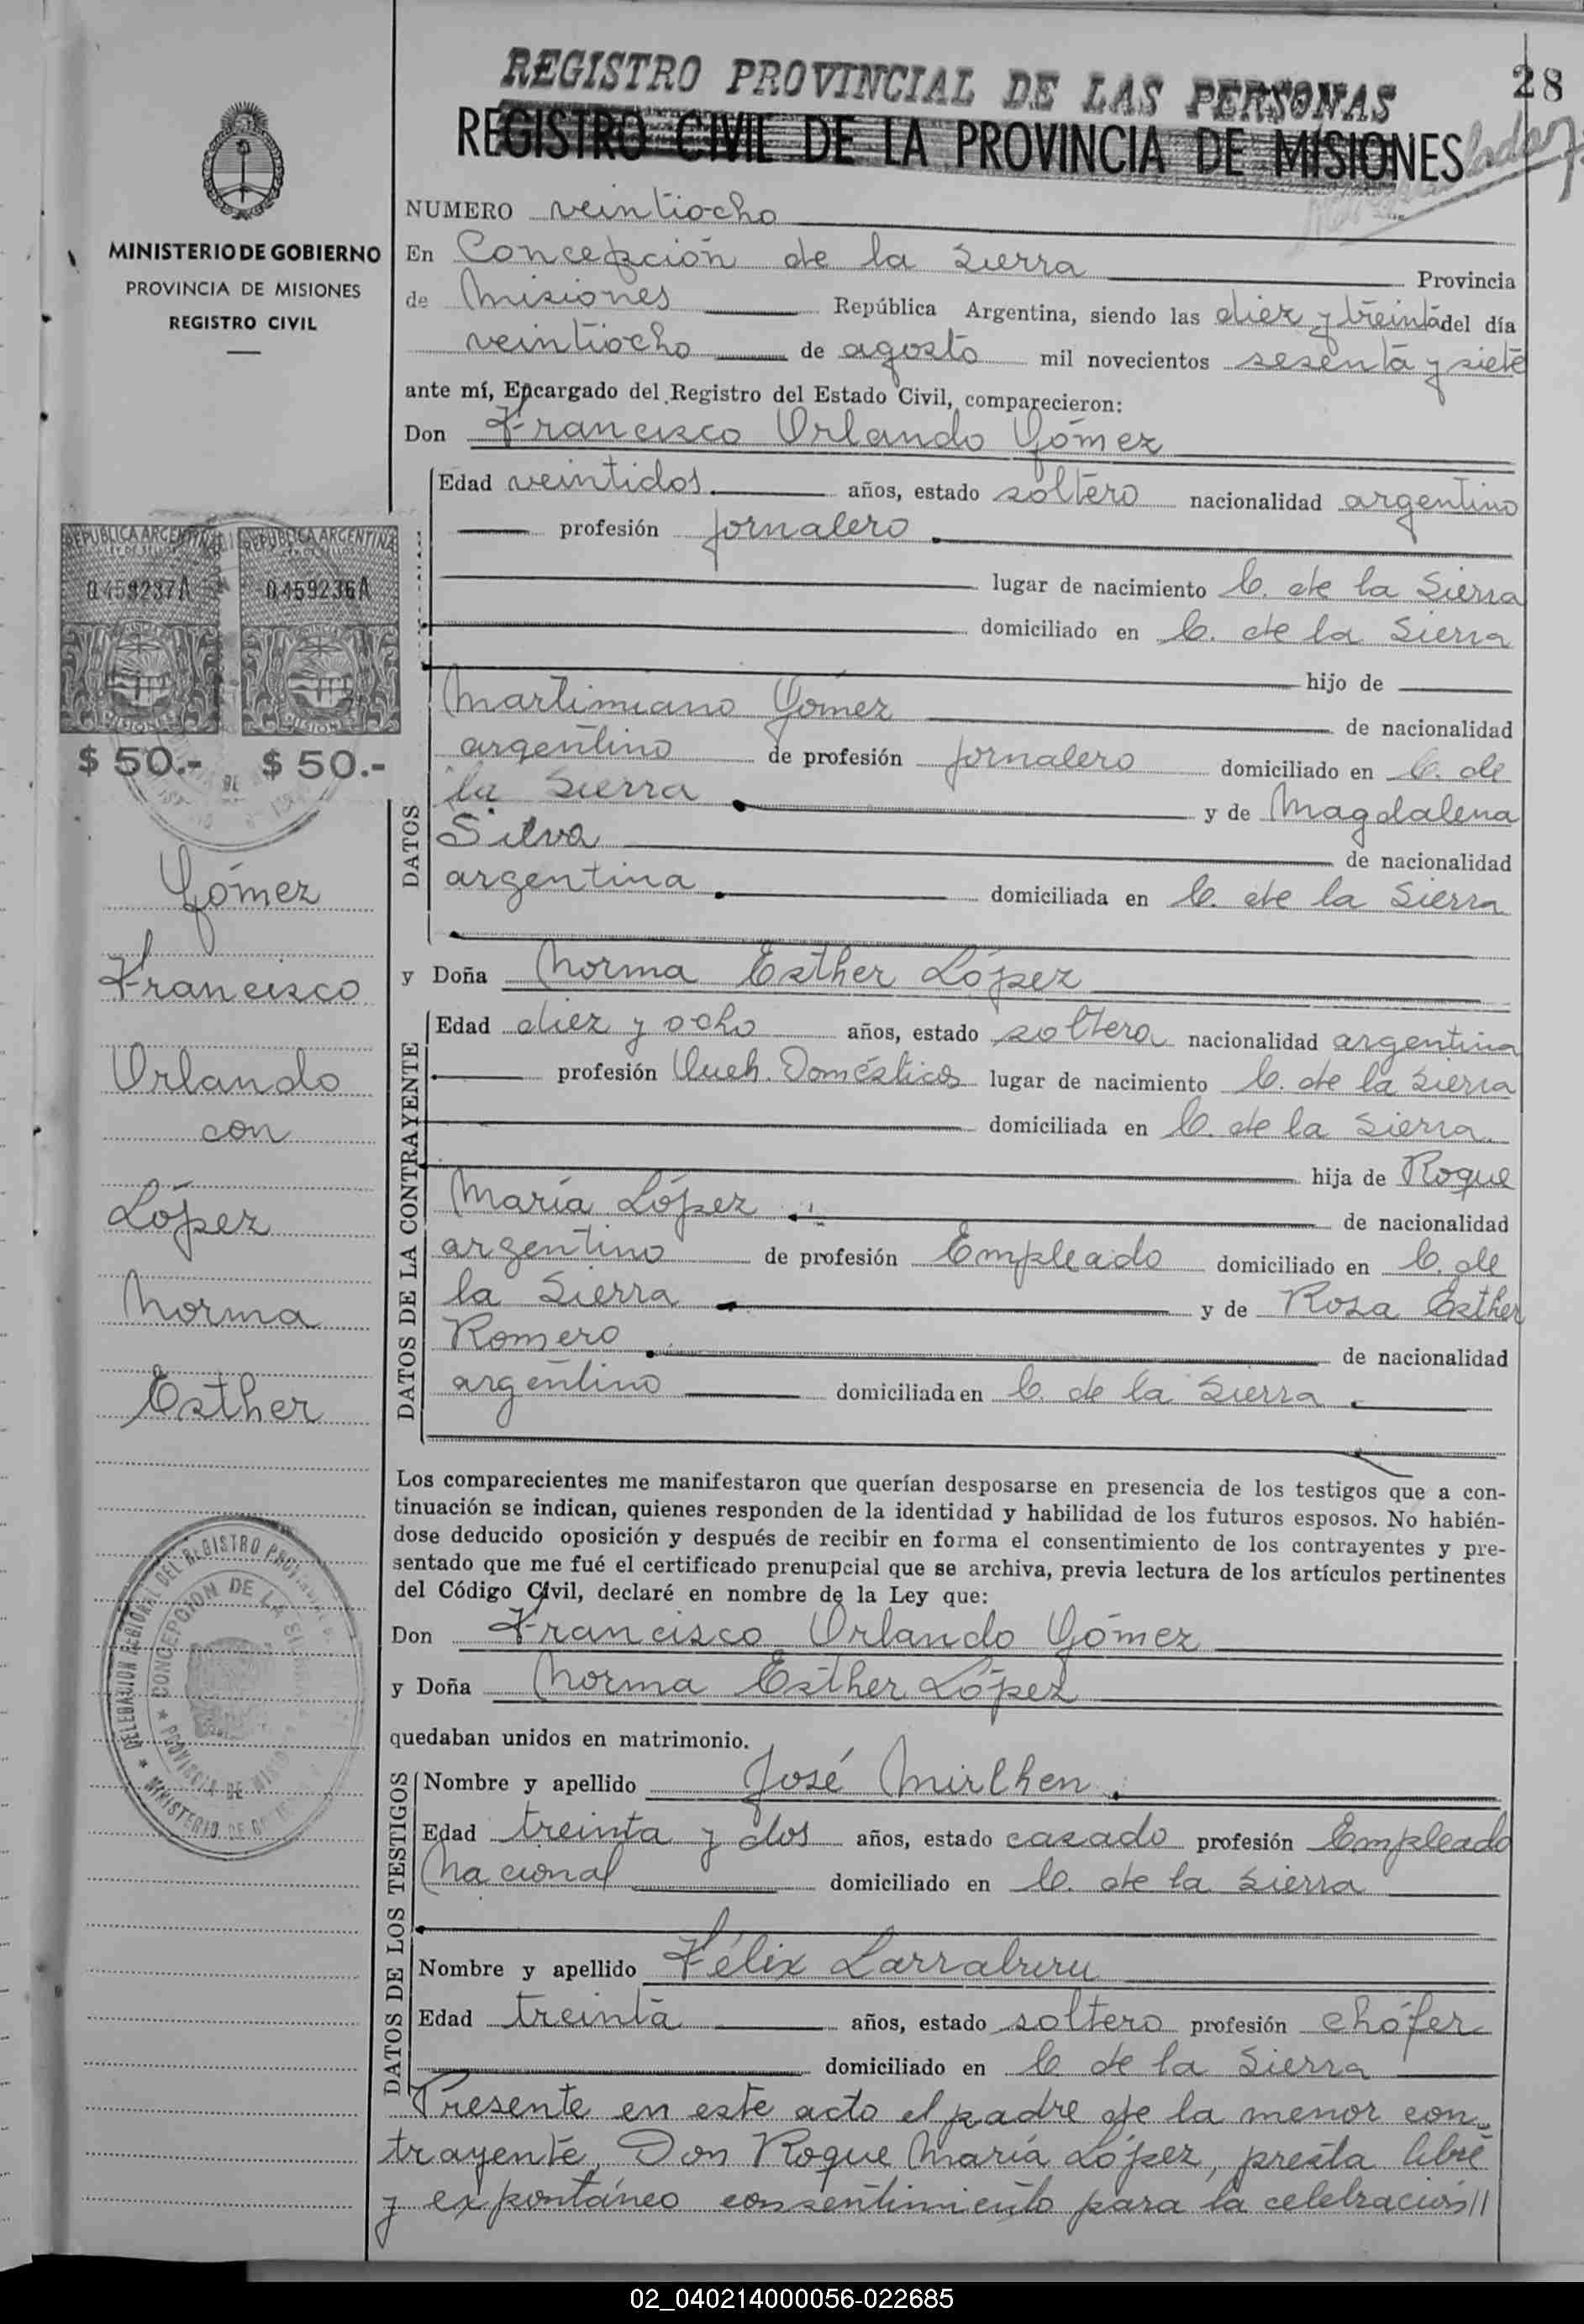 28
REGISTRO PROVINCIAL DE LAS PERSONAS
REGISTRO CIVIL DE LA PROVINCIA DE MISIONES
MINISTERIO DE GOBIERNO
PROVINCIA DE MISIONES
REGISTRO CIVIL
NUMERO veintiocho
En Concepción de la Sierra Provincia
de Misiones República Argentina, siendo las diez y treinta del día
veintiocho de agosto mil novecientos sesenta y siete
ante mí, Encargado del Registro del Estado Civil, comparecieron:
Don Francisco Orlando Gómez
Edad veintidos años, estado soltero nacionalidad argentino
profesión jornalero
lugar de nacimiento C. de la Sierra
domiciliado en C. de la Sierra
hijo de
Martimiano Gómez de nacionalidad
argentino de profesión jornalero domiciliado en C. de
la Sierra y de Magdalena
Silva de nacionalidad
argentina domiciliada en C. de la Sierra
DATOS
REPUBLICA ARGENTINA REPUBLICA ARGENTINA
LEY DE SELLOS
0.459237A 0.459236A
MISIONES MISIONES
$ 50.- $ 50.-
Gómez
Francisco
Orlando
con
López
Norma
Esther
y Doña Norma Esther López
Edad diez y ocho años, estado soltera nacionalidad argentina
profesión Queh. Domésticos lugar de nacimiento C. de la Sierra
domiciliada en C. de la Sierra
hija de Roque
María López de nacionalidad
argentino de profesión Empleado domiciliado en C. de
la Sierra y de Rosa Esther
Romero de nacionalidad
argentino domiciliada en C. de la Sierra
DATOS DE LA CONTRAYENTE
Los comparecientes me manifestaron que querían desposarse en presencia de los testigos que a con-
tinuación se indican, quienes responden de la identidad y habilidad de los futuros esposos. No habién-
dose deducido oposición y después de recibir en forma el consentimiento de los contrayentes y pre-
sentado que me fué el certificado prenupcial que se archiva, previa lectura de los artículos pertinentes
del Código Civil, declaré en nombre de la Ley que:
Don Francisco Orlando Gómez
y Doña Norma Esther López
quedaban unidos en matrimonio.
DELEGACION REGIONAL DEL REGISTRO
CONCEPCION DE LA
PROVINCIA DE
MINISTERIO DE
DATOS DE LOS TESTIGOS
Nombre y apellido José Mirlhen
Edad treinta y dos años, estado casado profesión Empleado
Nacional domiciliado en C. de la Sierra
Nombre y apellido Félix Larraburu
Edad treinta años, estado soltero profesión chófer
domiciliado en C de la Sierra
Presente en este acto el padre de la menor con-
trayente, Don Roque María López, presta libre
y expontáneo consentimiento para la celebración//
02_040214000056-022685